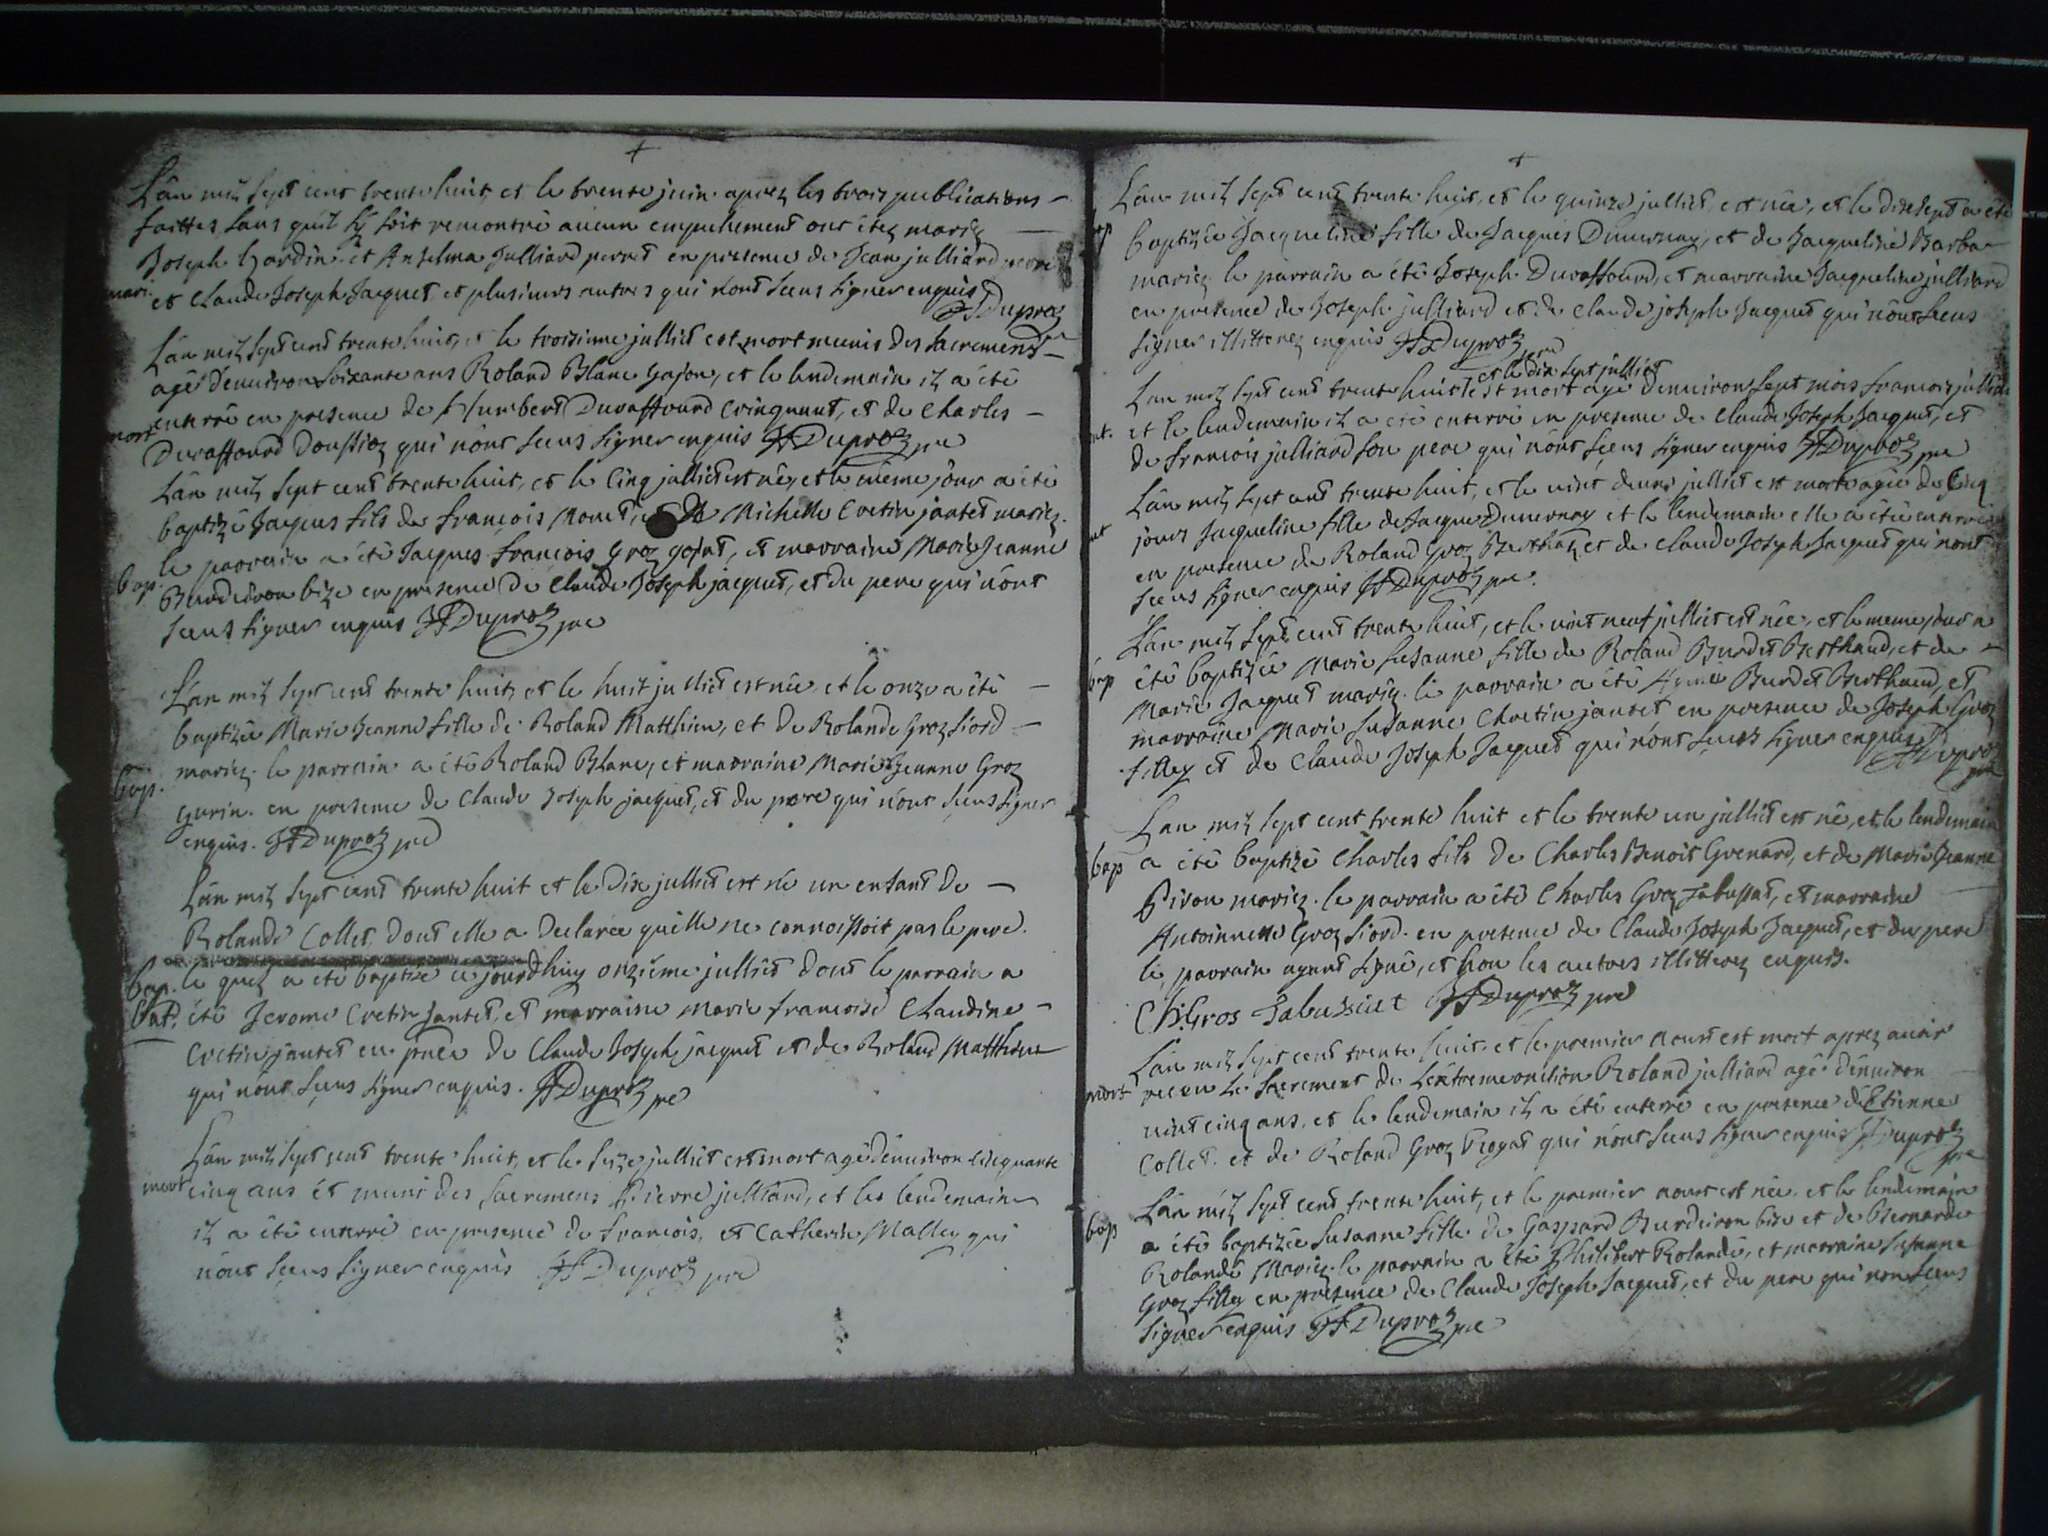 L'an mil sept cent trente huit, et le trente juin. aprez les trois publications
faittes sans quil sy soit rencontré aucun empechement ont étez mariez
Joseph et Anselma Julliard perret en presence de Jean julliard
mari. et Claude Joseph Jacquet et plusieurs autres qui n'ont sceus signer enquis
Duproz
L'an mil sept cent trente huit, et le troisieme julliet est mort munis des sacremens
agé d'environ soixante ans Roland Blanc gajon, et le lendemain il a été
mort enterré en presence de Humbert Duraffourd cinquant, et de Charles
Duraffourd qui n'ont sceus signer enquis Duproz pre
L'an mil sept cent trente huit, et le cinq julliet est né, et le même jour a été
baptizé Jacques fils de françois Monet, et de Michelle Cretin jantet mariez.
le parrain a été Jacques françois Groz gojat, et marraine Marie Jeanne
bap. Burdeiron bize en presence de Claude Joseph jacquet, et du pere qui n'ont
sceus signer enquis Duproz pre
L'an mil sept cent trente huit, et le huit julliet est née et le onze a été
baptizée Marie Jeanne fille de Roland Matthieu, et de Rolande Groz siord
bap. mariez. le parrain a été Roland Blanc, et marraine Marie Jeanne Groz
gurin. en presence de Claude Joseph jacquet, et du pere qui n'ont sceus signer
enquis. Duproz pre
L'an mil sept cent trente huit et le dix julliet est né un enfant de
Rolande Collet dont elle a declarée qu'elle ne connoissoit pas le pere.
bap. le quel a été baptizé ce jourdhuy onzieme julliet dont le parrain a
bat. été Jerome Cretin Jantet, et marraine Marie françoise Claudine
Cretin jantet en pnce de Claude Joseph jacquet et de Roland Matthieu
qui n'ont sceus signer enquis. Duproz pre
L'an mil sept cent trente huit, et le seize julliet est mort agé d'environ cinquante
mort cinq ans et muni des sacremens Pierre julliard, et le lendemain
il a été enterré en presence de françois, et Catherin Malley qui
n'ont sceus signer enquis Duproz pre
L'an mil sept cent trente huit, et le quinze julliet, est née, et le dixsept a été
bap baptizée Jacqueline fille de Jacques Dunernay, et de Jacqueline Barba
mariez le parrain a été Joseph Duraffourd, et marraine Jacqueline julliard
en presence de Joseph julliard et de Claude joseph Jacquet qui n'ont sceus
signer illitterez enquis Duproz pre
et le dix sept julliet
L'an mil sept cent trente huit est mort agé d'environ sept mois francois julliard
et le lendemain il a été enterré en presence de Claude Joseph Jacquet, et
de francois julliard son pere qui n'ont sceus signer enquis Duproz pre
L'an mil sept cent trente huit, et le vint deux julliet est morte agée de cinq
jours Jacqueline fille de Jacque Dunernay et le lendemain elle a été enterrée
en presence de Roland Groz Berthaz et de Claude Joseph Jacquet qui n'ont
sceus signer enquis Duproz pre.
L'an mil sept cent trente huit, et le vint neuf julliet est née, et le meme jour a
bap été baptizée Marie Susanne fille de Roland Burdet Berthaud, et de
Marie Jacquet mariez. le parrain a été Burdet Berthaud, et
marraine Marie Susanne Cretin jantet en presence de Joseph Groz
filley et de Claude Joseph Jacquet qui n'ont sceus signer enquis Duproz
pre
L'an mil sept cent trente huit et le trente un julliet est né, et le lendemain
bap a été baptizé Charles fils de Charles Benoit Grenard, et de Marie Jeanne
Piron mariez. le parrain a été Charles Groz Jabussat, et marraine
Antoinette Groz siord. en presence de Claude Joseph Jacquet, et du pere
le parrain ayant signé, et non les autres illitterez enquis.
Ch: Gros Jabussiet Duproz pre
L'an mil sept cent trente huit et le premier aoust est mort aprez avoir
mort receu le sacrement de l'extremeonction Roland julliard agé d'environ
vint cinq ans. et le lendemain il a été enterré en presence d'Etienne
Collet. et de Roland Groz Rogat qui n'ont sceus signer enquis Duproz
pre
L'an mil sept cent trente huit, et le premier aoust est née. et le lendemain
bap a été baptizée Susanne fille de Gaspard Burdeiron bize et de Bernarde
Rolande mariez. le parrain a été Philibert Rolandé, et marraine Susanne
Groz filley en presence de Claude Joseph Jacquet, et du pere qui n'ont sceus
signer enquis Duproz pre